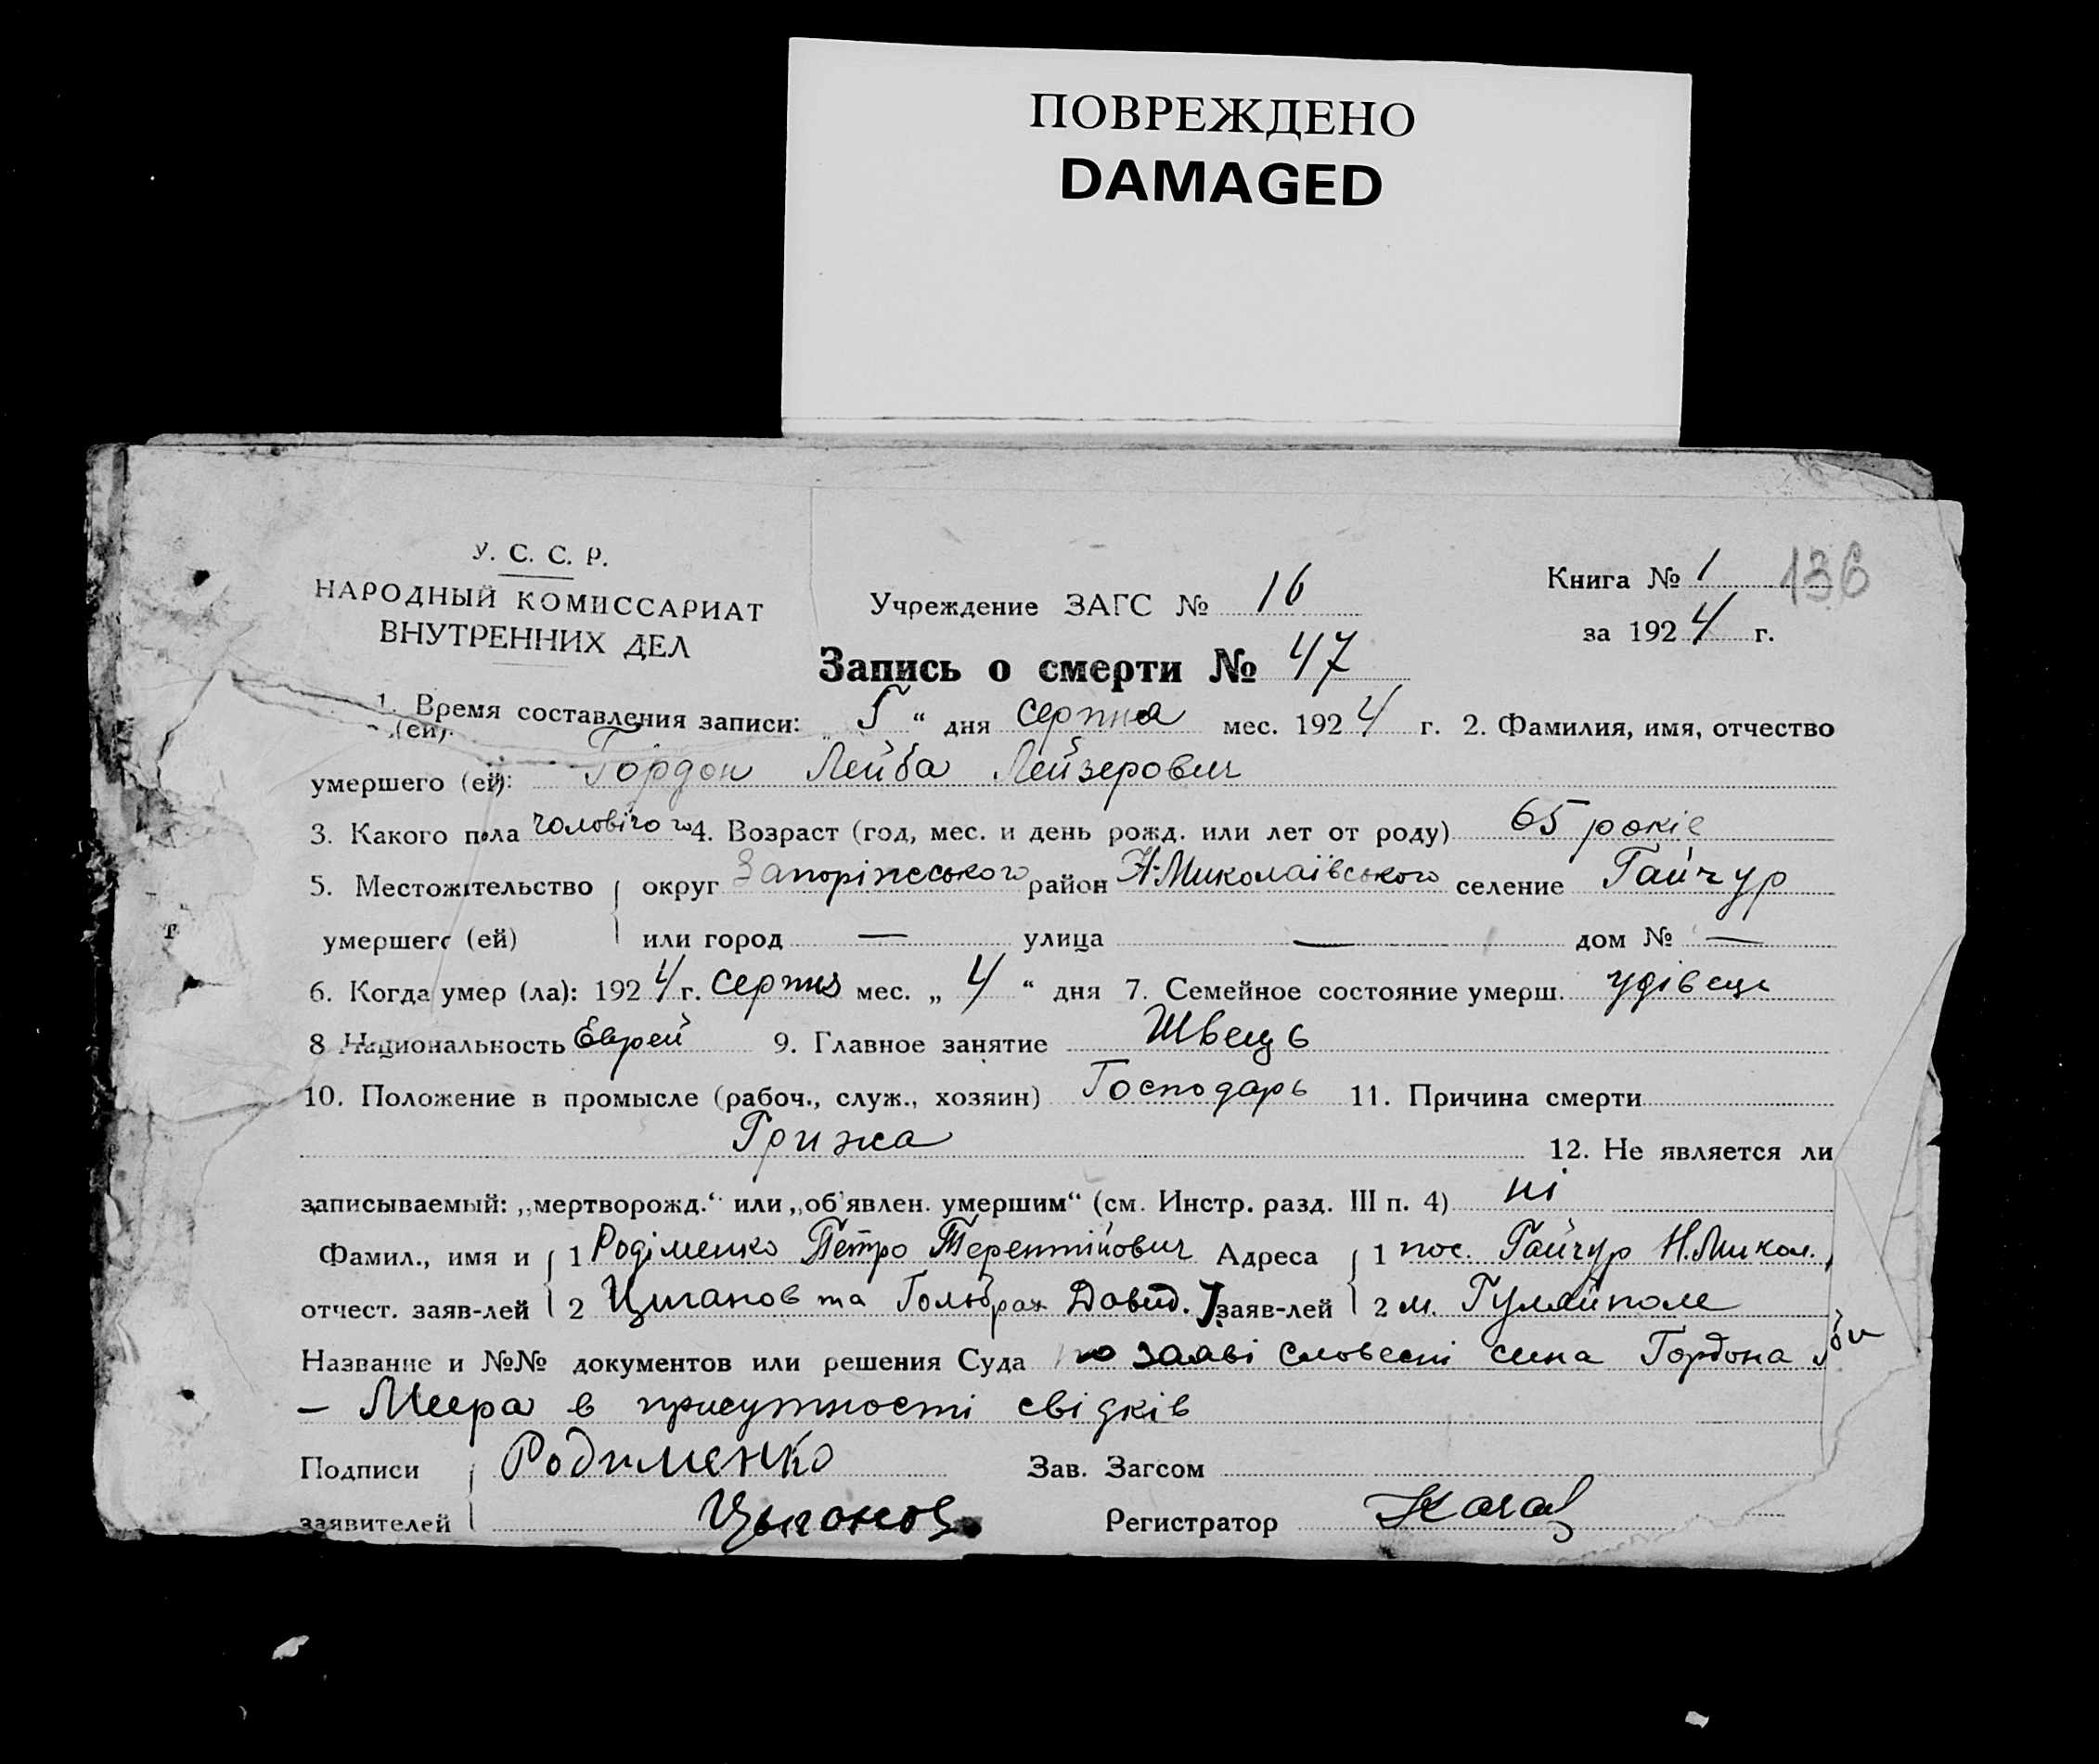 ПОВРЕЖДЕНО
DAMAGED
У. С. С. Р.
НАРОДНЫЙ КОМИССАРИАТ
ВНУТРЕННИХ ДЕЛ
Учреждение ЗАГС № 16
Книга № 1 136
за 1924 г.
Запись о смерти № 47
1. Время составления записи: „5“ дня серпня мес. 1924 г. 2. Фамилия, имя, отчество
(ей).
умершего (ей): Гордон Лейба Лейзерович
3. Какого пола чоловічого 4. Возраст (год, мес. и день рожд. или лет от роду) 65 років
5. Местожительство округ Запоріжського район Н-Миколаївського селение Гайчур
умершего (ей) или город — улица — дом № —
6. Когда умер (ла): 1924 г. серпня мес. „4“ дня 7. Семейное состояние умерш. удівець
8 Национальность Еврей 9. Главное занятие Швець
10. Положение в промысле (рабоч., служ., хозяин) Господарь 11. Причина смерти
Грижа 12. Не является ли
записываемый: „мертворожд.“ или „об'явлен. умершим“ (см. Инстр. разд. III п. 4) ні
Фамил., имя и 1 Родіменко Петро Терентійович Адреса 1 пос. Гайчур Н.Микол.
отчест. заяв-лей 2 Циганов та Давид. заяв-лей 2 м. Гуляйполе
Название и №№ документов или решения Суда по заяві словесні сина Гордона
— Меера в присутності свідків
Подписи Родименко Зав. Загсом
заявителей Цыганов Регистратор